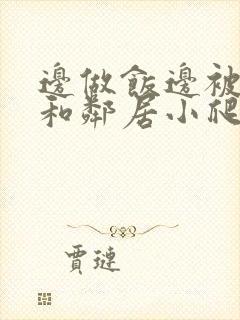 邊做飯邊被
和鄰居小爬
賈璉